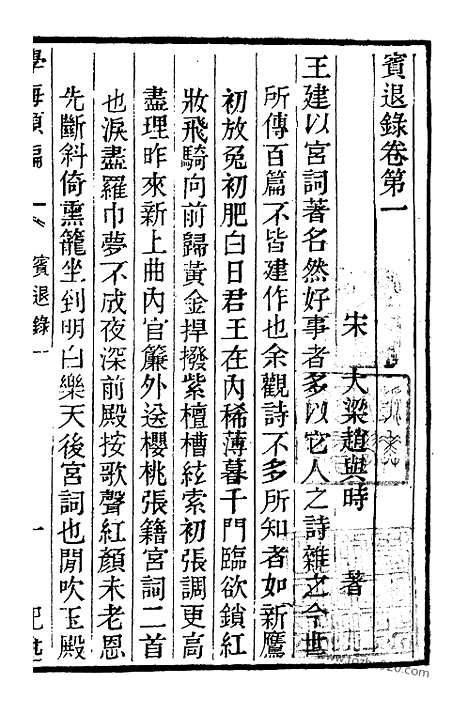 賓退錄卷第一
宋 大梁趙與時 著
王建以宮詞著名然好事者多以它人之詩雜之今世
所傳百篇不皆建作也余觀詩不多所知者如新鷹
初放兔初肥白日君王在內稀薄暮千門臨欲鎖紅
妝飛騎向前歸黃金捍撥紫檀槽絃索初張調更高
盡理昨來新上曲內官簾外送櫻桃張籍宮詞二首
也淚盡羅巾夢不成夜深前殿按歌聲紅顏未老恩
先斷斜倚熏籠坐到明白樂天後宮詞也閒吹玉殿
學海類編 賓退錄一 一